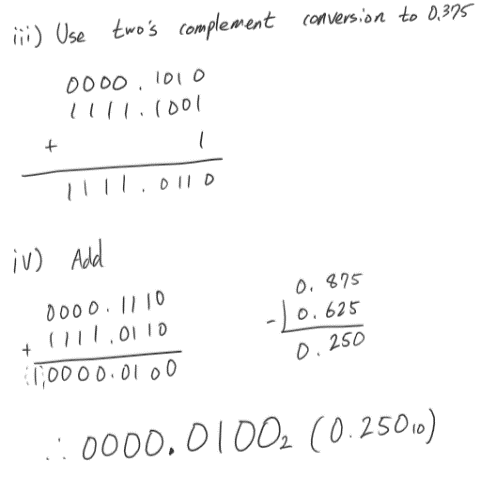 iii) Use two's complement conversion to 0.375
0000.1010
1111.1001
+ 1
1111.0110
iv) Add
0000.1110
+ 1111.0110
1,0000.0100
0.875
- 0.625
0.250
∴ 0000.0100₂ (0.250₁₀)